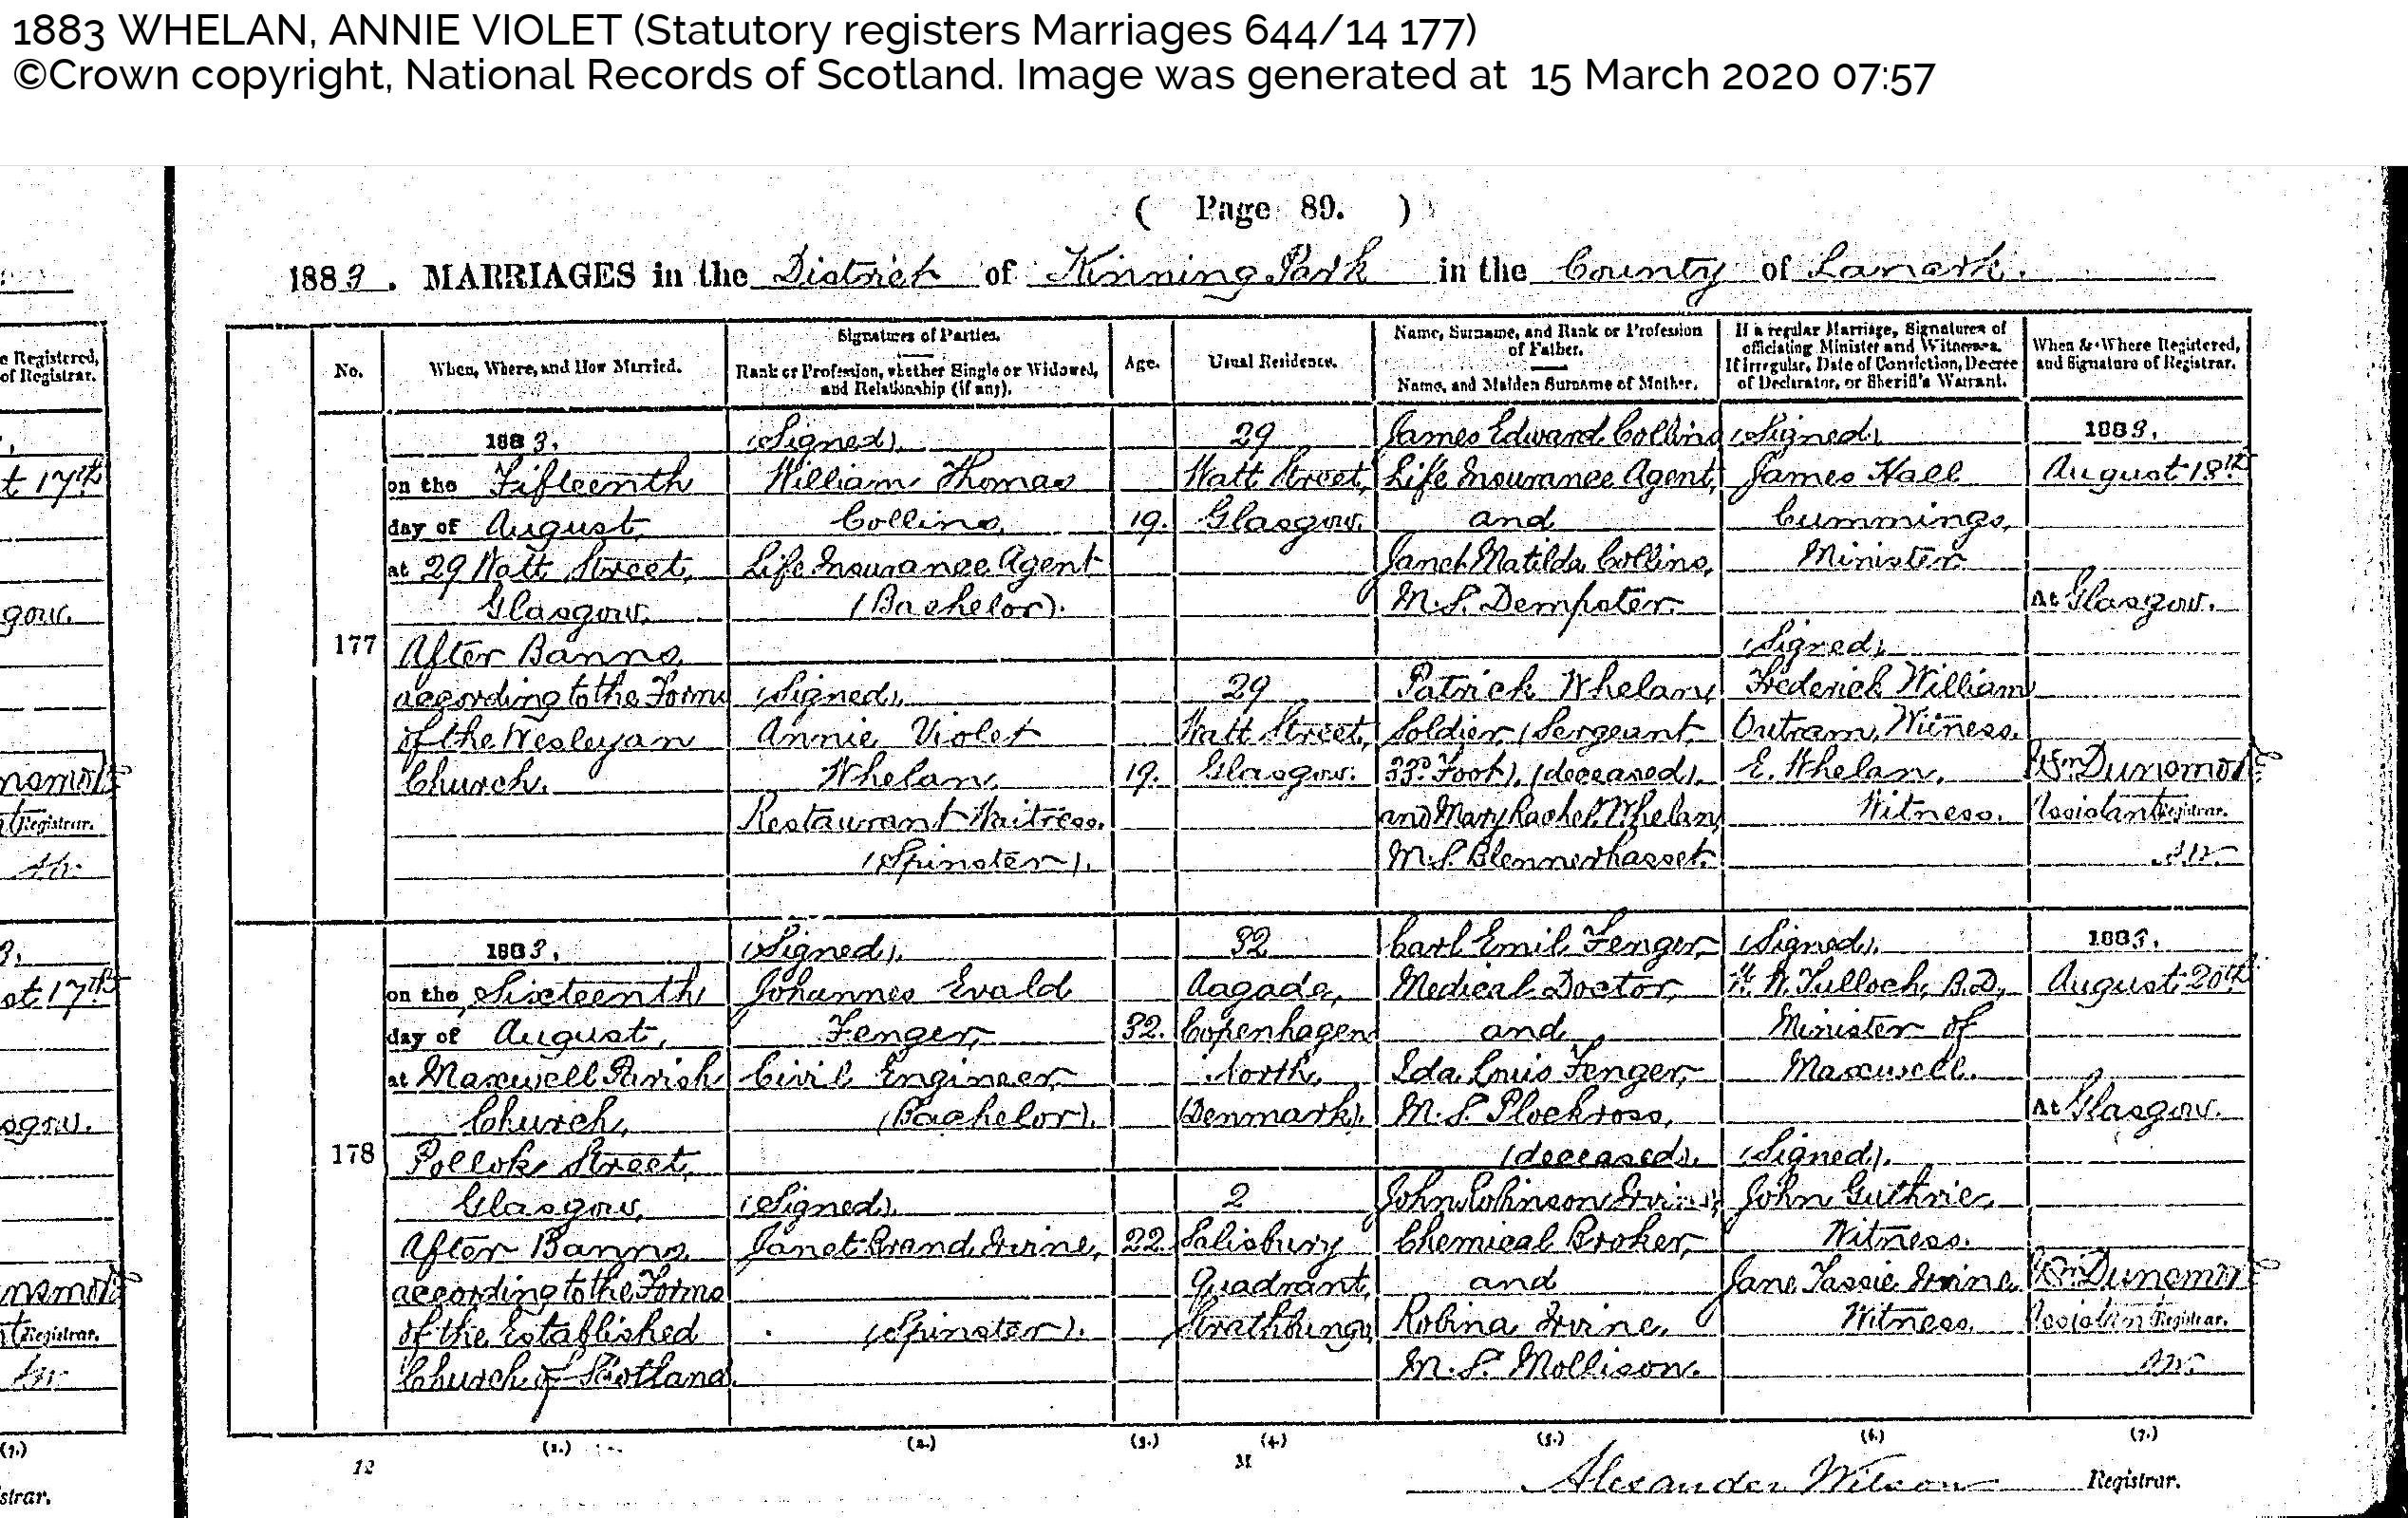 1883 WHELAN, ANNIE VIOLET (Statutory registers Marriages 644/14 177)
©Crown copyright, National Records of Scotland. Image was generated at 15 March 2020 07:57
( Page 89. )
1883. MARRIAGES in the District of Kinning Park in the County of Lanark.
No.
When, Where, and How Married.
Signatures of Parties.
Rank or Profession, whether Single or Widowed,
and Relationship (if any).
Age.
Usual Residence.
Name, Surname, and Rank or Profession
of Father.
Name, and Maiden Surname of Mother.
If a regular Marriage, Signatures of
officiating Minister and Witnesses.
If irregular, Date of Conviction, Decree
of Declarator, or Sheriff's Warrant.
When & Where Registered,
and Signature of Registrar.
177
1883.
on the Fifteenth
day of August,
at 29 Watt Street,
Glasgow.
After Banns,
according to the Forms
of the Wesleyan
Church.
(Signed).
William Thomas
Collins,
Life Insurance Agent
(Bachelor).
(Signed).
Annie Violet
Whelan,
Restaurant Waitress.
(Spinster).
19.
19.
29
Watt Street,
Glasgow.
29
Watt Street,
Glasgow.
James Edward Collins
Life Insurance Agent,
and
Janet Matilda Collins,
M.S. Dempster.
Patrick Whelan,
Soldier, (Sergeant
33rd Foot), (deceased).
and Mary Rachel Whelan,
M.S. Blennerhasset.
(Signed),
James Hall
Cummings,
Minister
(Signed),
Frederick William
Outram, Witness.
E. Whelan,
Witness.
1883.
August 18th
At Glasgow.
Wm Dunsmore
Assistant Registrar.
178
1883.
on the Sixteenth
day of August,
at Maxwell Parish
Church,
Pollok Street,
Glasgow,
After Banns,
according to the Forms
of the Established
Church of Scotland.
(Signed).
Johannes Evald
Fenger,
Civil Engineer,
(Bachelor).
(Signed).
Janet Brand Irvine,
(Spinster).
32.
22.
32
Aagade,
Copenhagen
North,
(Denmark).
2
Salisbury
Quadrant,
Strathbungo,
Carl Emil Fenger,
Medical Doctor,
and
Ida Louis Fenger,
M.S. Plockross,
(deceased).
John Robinson Irvine,
Chemical Broker,
and
Robina Irvine,
M.S. Mollison.
(Signed).
W. Tulloch, B.D,
Minister of
Maxwell.
(Signed).
John Guthrie,
Witness.
Jane Tassie Irvine
Witness.
1883.
August 20th
At Glasgow.
Wm Dunsmore
Assistant Registrar.
(1.) (2.) (3.) (4.) (5.) (6.) (7.)
12
M
Alexander Wilson Registrar.
e Registered,
of Registrar.
t 17th
gow.
Registrar.
st 17th
sgow.
Registrar.
(7.)
strar.